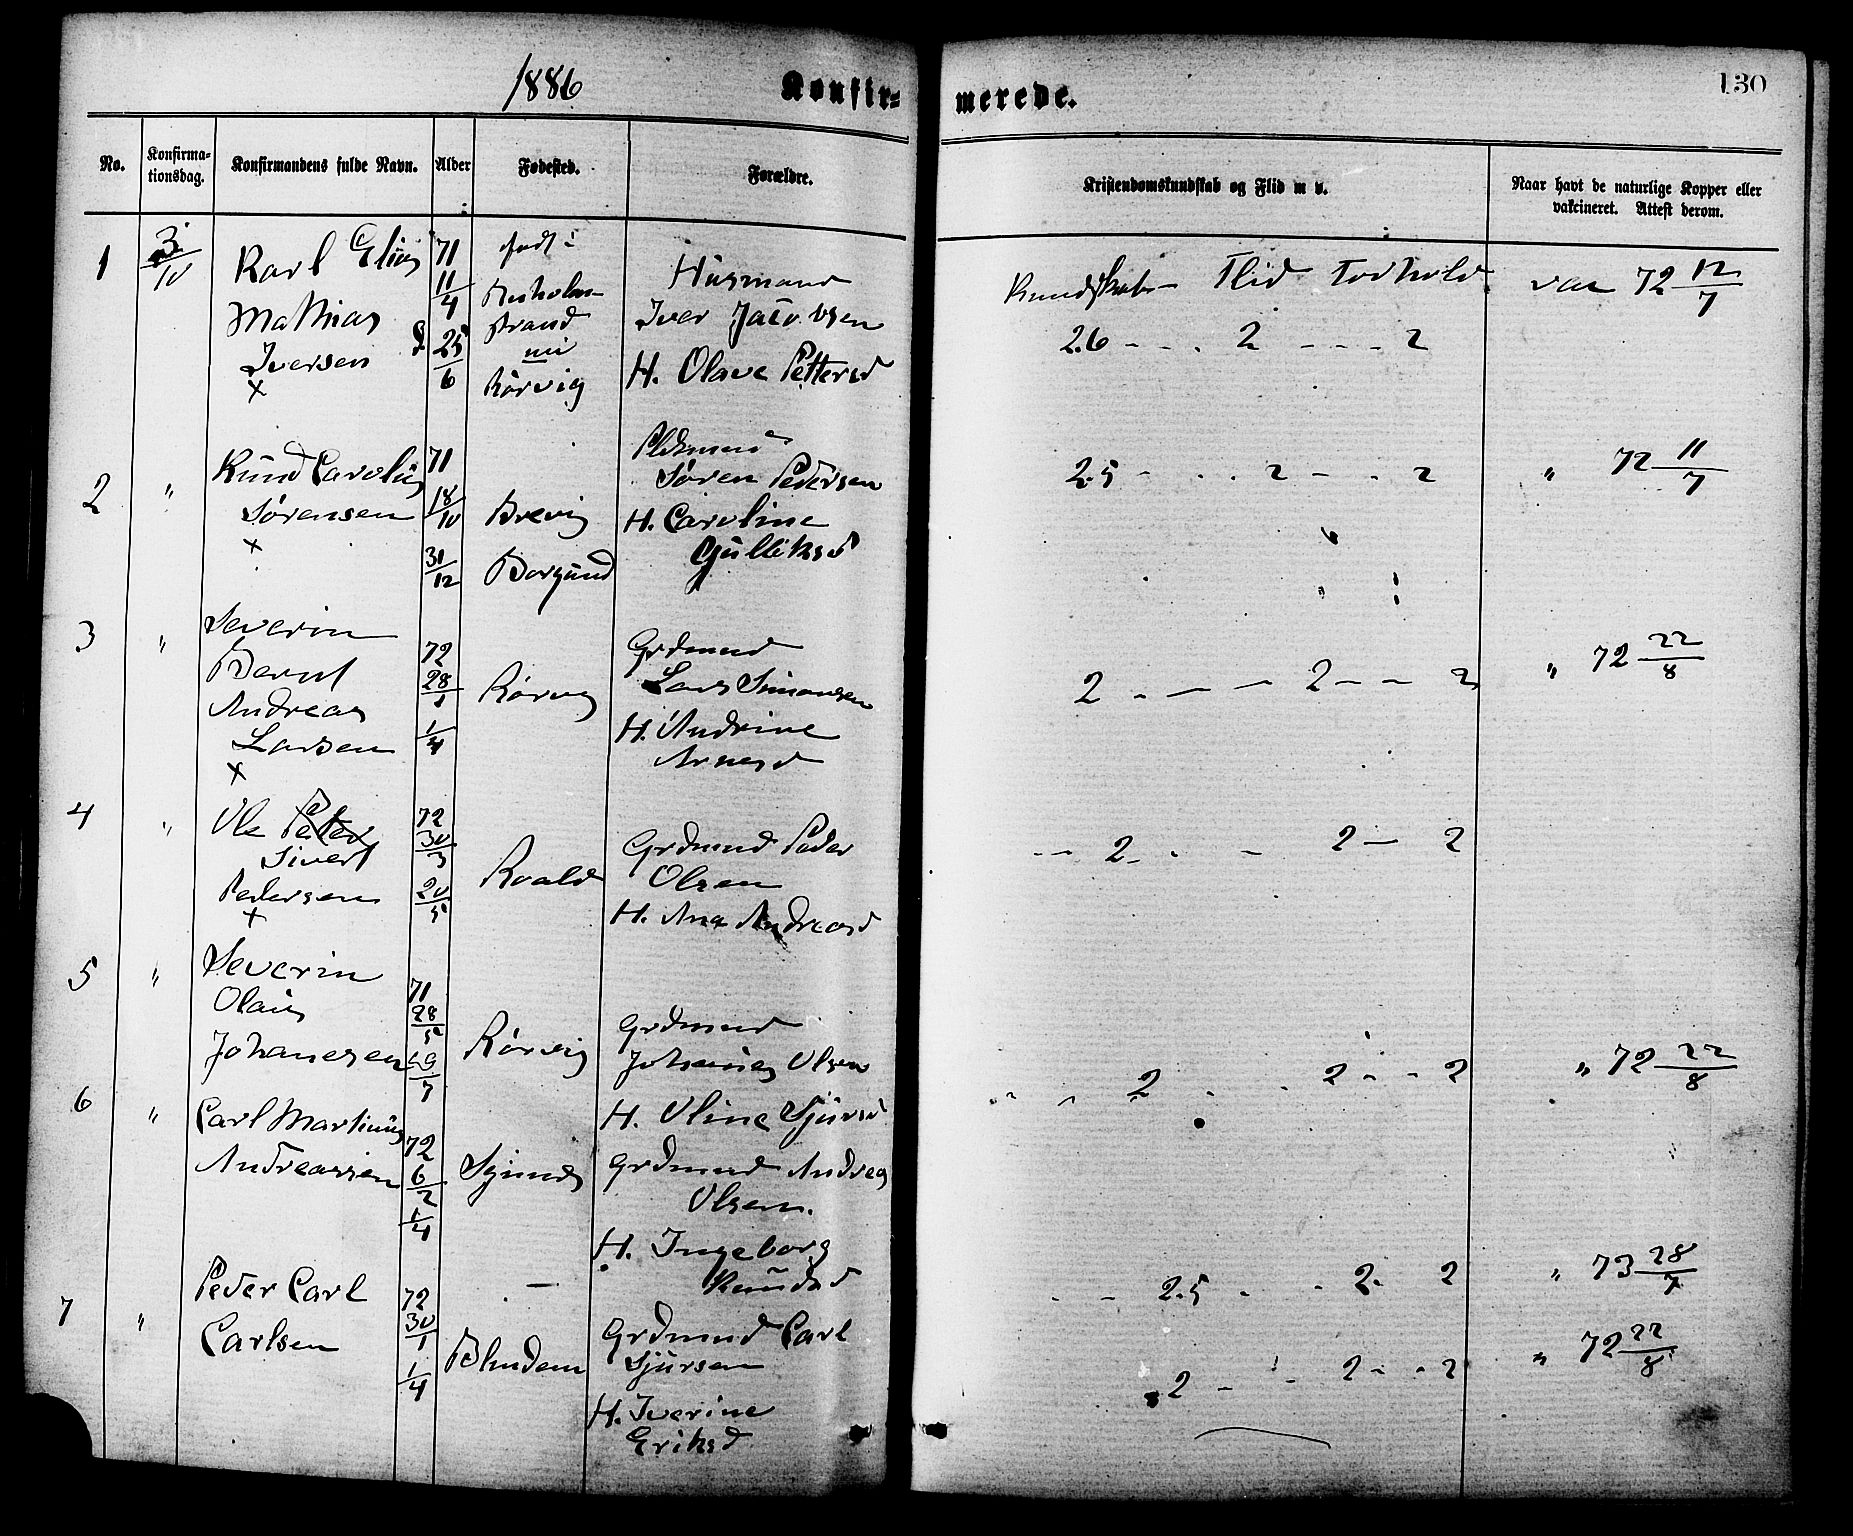 1886 Konfir= merede. 130
No. Konfirma-tionsdag. Konfirmandens fulde Navn. Alder Fødested. Forældre. Kristendomskundskab og Flid m v. Naar havt de naturlige Kopper eller vakcineret. Attest derom.
1 3/10 Karl Elias 71 født i
11/4 Husmand Kundskab Flid Forhold vac 72 12/7
Mathias strand Iver Jacobsen 2.6 - - . 2 - - - 2
Iversen d 25/6 nu
x Rørvig H. Olave Pettersd
2 " Knud Carolus 71 Søren Pedersen 2.5 - . . 2 - . . 2 " 72 11/7
Sørensen 18/10 Brevig H. Caroline
x Gulliksd
31/12 Borgund
3 " Severin
Bernt 72 Grdmand " 72 22/8
Andreas 28/1 Rørvig Lars Simonsen 2 - - - 2 - - 2
Larsen 1/4 H. Andrine
x Arnesd
4 " Ole Peter 72
Sivert 30/3 Grdmand Peder - - 2 - . - 2 - 2
Pedersen 20/5 Roald Olsen
x H. Ana Andreasd
5 " Severin
Olaus 71
28/5 Grdmand
Johanesen 19/7 Rørvig Johannes Olsen - - 2 . . 2 - - 2 " 72 22/8
H. Oline Sjursd
6 " Carl Martinus 72
Andreassen 6/2 Grdmand Andreas
1/4 Olsen.
H. Ingeborg
Knudsd . - 2.5 - . 2. 2 " 73 28/7
7 " Peder Carl 72
Carlsen 30/1 Grdmand Carl
1/4 Blindem Sjursen 2 - - 2 - - 2 " 72 22/8
H. Iverine
Eriksd